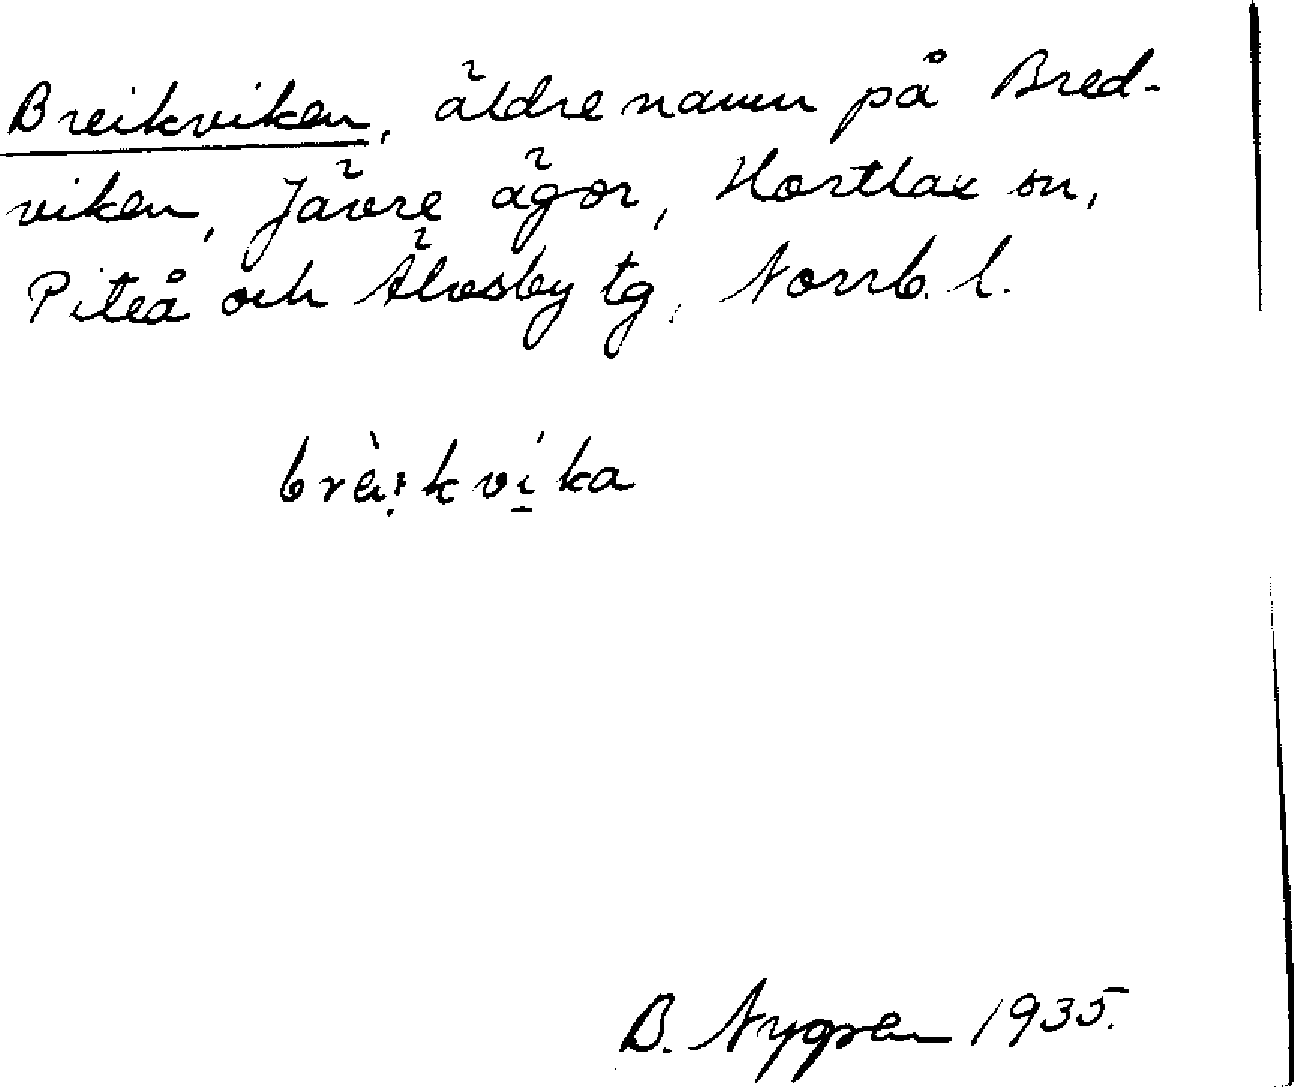 Breikviken, äldre namn på Bred-
viken, Jävre ägor, Hortlax sn,
Piteå och Älvsby tg, Norrb. l.
B. Nygren 1935.